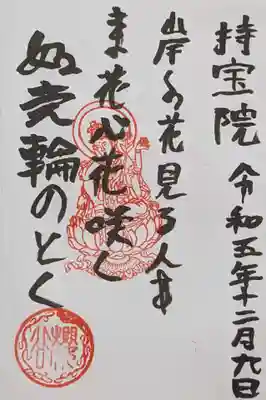 持宝院 令和五年十二月九日
岸の花見る人も
ま花心花咲く
輪のとく